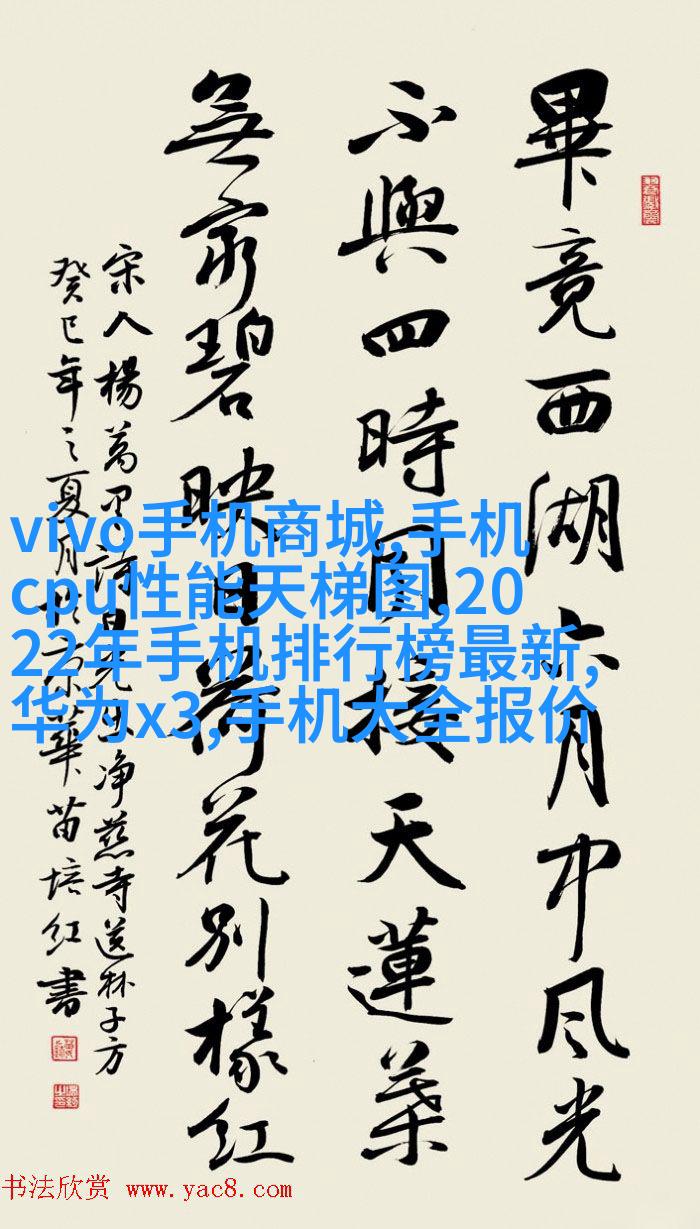 畢竟西湖六月中风光
不與四時同接天蓮葉
無窮碧映日荷花別樣红
宋人楊萬里詩曉出净慈寺送林子方
癸巳年之夏月於京華苗培红書
vivo手机商城,手机
cpu性能天梯图,20
22年手机排行榜最新,
华为x3,手机大全报价
书法欣赏 www.yac8.com